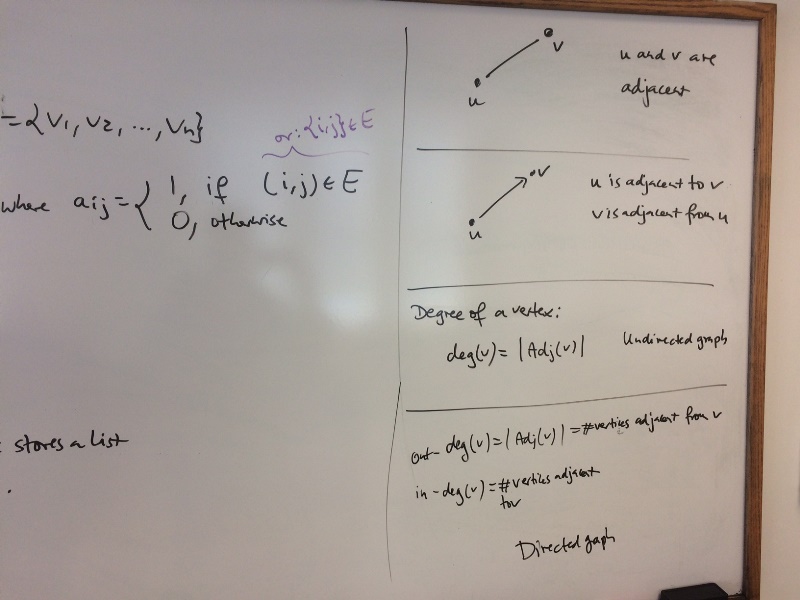 = {V1, V2, ..., Vn}
or: {i,j} ∈ E
where aij = { 1, if (i,j) ∈ E
0, otherwise
: stores a list
.
v
u
u and v are
adjacent
v
u
u is adjacent to v
v is adjacent from u
Degree of a vertex:
deg(v) = |Adj(v)| Undirected graph
out-deg(v) = |Adj(v)| = #vertices adjacent from v
in-deg(v) = #vertices adjacent
to v
Directed graph